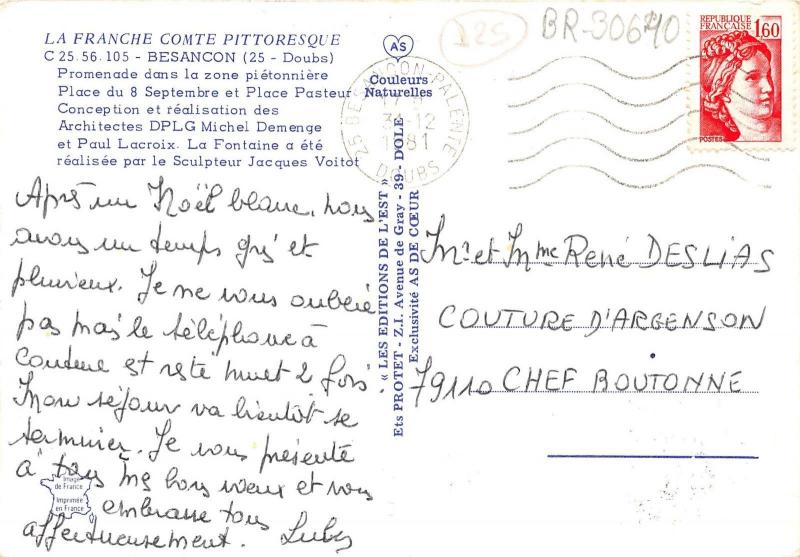 LA FRANCHE COMTE PITTORESQUE
C 25.56.105 - BESANCON (25 - Doubs)
Promenade dans la zone piétonnière
Place du 8 Septembre et Place Pasteur
Conception et réalisation des
Architectes DPLG Michel Demenge
et Paul Lacroix. La Fontaine a été
réalisée par le Sculpteur Jacques Voitot
AS
Couleurs
Naturelles
125
BR-30640
25 BESANCON-PALENTE
31-12
1981
DOUBS
REPUBLIQUE
FRANÇAISE
1,60
POSTES
Après un Noël blanc, nous
avons un temps gris et
pluvieux. Je ne vous oublié
pas mais le téléphone à
Couture est resté muet 2 fois
Mon séjour va bientôt se
terminer. Je vous présente
à tous mes bons vœux et vous
embrasse tous
affectueusement.
« LES EDITIONS DE L'EST »
Ets PROTET - Z.I. Avenue de Gray - 39 - DOLE
Exclusivité AS DE CŒUR
Mr et Mme René DESLIAS
COUTURE D'ARGENSON
79110 CHEF BOUTONNE
Image
de France
Imprimée
en France